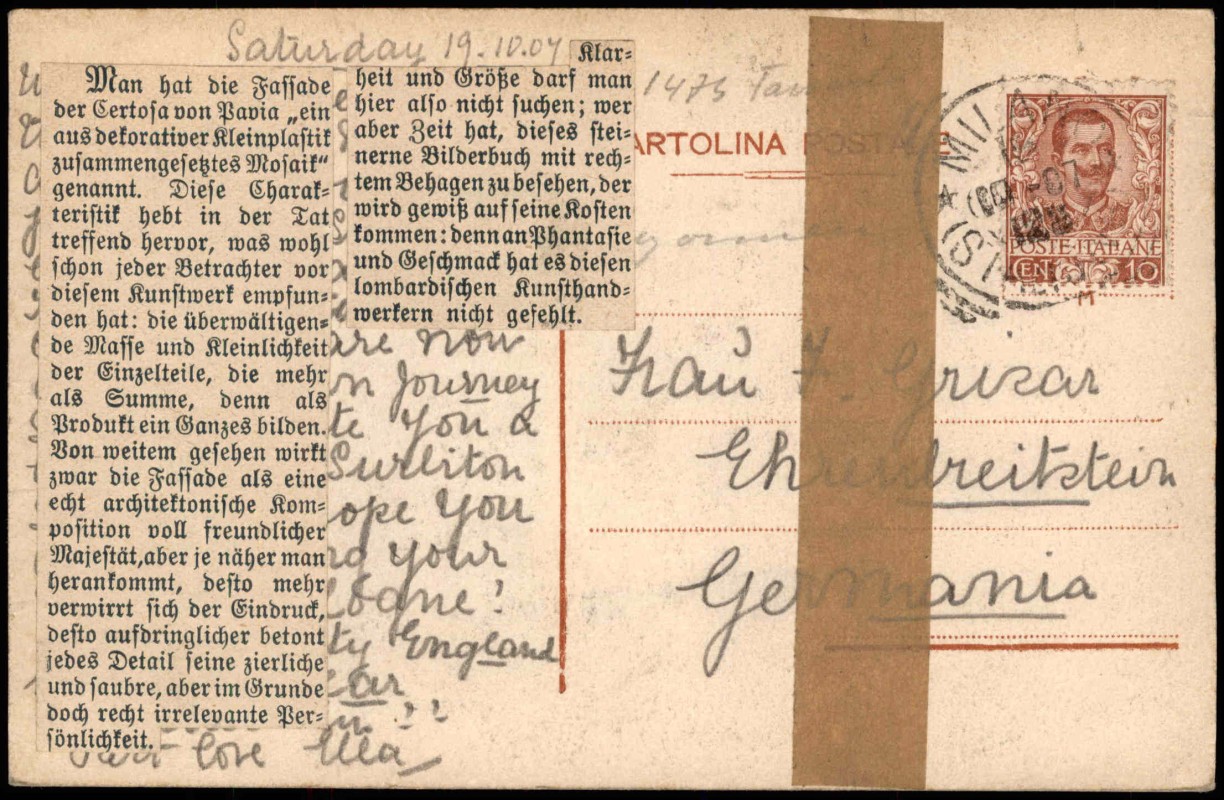 Saturday 19.10.07
Man hat die Fassade
der Certosa von Pavia „ein
aus dekorativer Kleinplastik
zusammengesetztes Mosaik“
genannt. Diese Charak-
teristik hebt in der Tat
treffend hervor, was wohl
schon jeder Betrachter vor
diesem Kunstwerk empfun-
den hat: die überwältigen-
de Masse und Kleinlichkeit
der Einzelteile, die mehr
als Summe, denn als
Produkt ein Ganzes bilden.
Von weitem gesehen wirkt
zwar die Fassade als eine
echt architektonische Kom-
position voll freundlicher
Majestät, aber je näher man
herankommt, desto mehr
verwirrt sich der Eindruck,
desto aufdringlicher betont
jedes Detail seine zierliche
und saubre, aber im Grunde
doch recht irrelevante Per-
sönlichkeit.
Klar-
heit und Größe darf man
hier also nicht suchen; wer
aber Zeit hat, dieses stei-
nerne Bilderbuch mit rech-
tem Behagen zu besehen, der
wird gewiß auf seine Kosten
kommen: denn an Phantasie
und Geschmack hat es diesen
lombardischen Kunsthand-
werkern nicht gefehlt.
now
Journey
you a
Surbiton
you
your
England
love Ella
1475
ARTOLINA POST
MILA
07
POSTE ITALIANE
CEN 10
Frau F. Grisar
Ehrenbreitstein
Germania